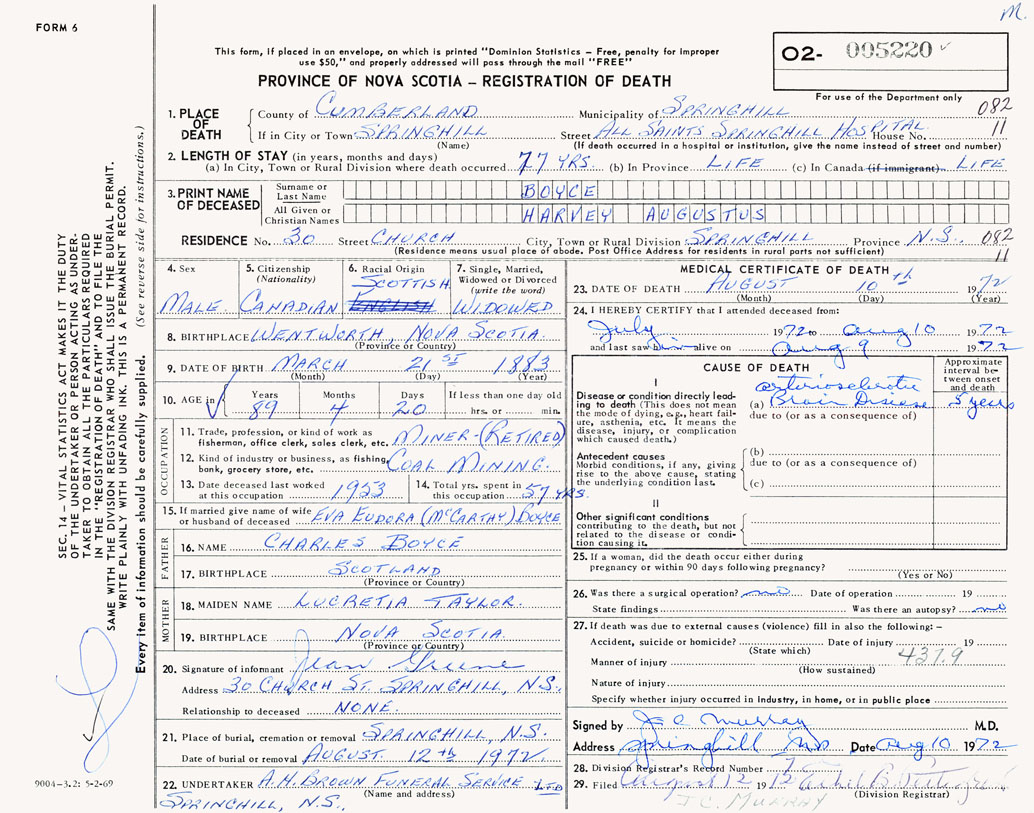 M.
FORM 6
This form, if placed in an envelope, on which is printed "Dominion Statistics – Free, penalty for improper
use $50," and properly addressed will pass through the mail "FREE"
O2- 005220
PROVINCE OF NOVA SCOTIA – REGISTRATION OF DEATH
For use of the Department only
1. PLACE OF DEATH
County of CUMBERLAND Municipality of SPRINGHILL 082
If in City or Town SPRINGHILL Street ALL SAINTS SPRINGHILL HOSPITAL House No. 11
(Name) (If death occurred in a hospital or institution, give the name instead of street and number)
2. LENGTH OF STAY (in years, months and days)
(a) In City, Town or Rural Division where death occurred 77 YRS. (b) In Province LIFE (c) In Canada (if immigrant) LIFE
3. PRINT NAME OF DECEASED
Surname or Last Name BOYCE
All Given or Christian Names HARVEY AUGUSTUS
RESIDENCE No. 30 Street CHURCH City, Town or Rural Division SPRINGHILL Province N.S. 082
(Residence means usual place of abode. Post Office Address for residents in rural parts not sufficient) 11
4. Sex MALE
5. Citizenship (Nationality) CANADIAN
6. Racial Origin SCOTTISH ENGLISH
7. Single, Married, Widowed or Divorced (write the word) WIDOWED
8. BIRTHPLACE WENTWORTH, NOVA SCOTIA
(Province or Country)
9. DATE OF BIRTH MARCH 21ST 1883
(Month) (Day) (Year)
10. AGE in Years 89 Months 4 Days 20 If less than one day hrs. or min.
OCCUPATION
11. Trade, profession, or kind of work as
fisherman, office clerk, sales clerk, etc. MINER-(RETIRED)
12. Kind of industry or business, as fishing,
bank, grocery store, etc. COAL MINING.
13. Date deceased last worked
at this occupation 1953
14. Total yrs. spent in
this occupation 57 YRS.
15. If married give name of wife
or husband of deceased EVA EUDORA (MCCARTHY) BOYCE
FATHER
16. NAME CHARLES BOYCE
17. BIRTHPLACE SCOTLAND
(Province or Country)
MOTHER
18. MAIDEN NAME LUCRETIA TAYLOR.
19. BIRTHPLACE NOVA SCOTIA.
(Province or Country)
20. Signature of informant Jean Greene
Address 30 CHURCH ST. SPRINGHILL, N.S.
Relationship to deceased NONE.
21. Place of burial, cremation or removal SPRINGHILL, N.S.
Date of burial or removal AUGUST. 12th 1972.
22. UNDERTAKER A.H. BROWN FUNERAL SERVICE LTD
(Name and address)
SPRINGHILL, N.S.,
MEDICAL CERTIFICATE OF DEATH
23. DATE OF DEATH AUGUST 10th 1972
(Month) (Day) (Year)
24. I HEREBY CERTIFY that I attended deceased from:
July 1972 to Aug 10 1972
and last saw him alive on Aug 9 1972
CAUSE OF DEATH
Approximate interval between onset and death
I
Disease or condition directly lead-
ing to death (This does not mean
the mode of dying, e.g., heart fail-
ure, asthenia, etc. It means the
disease, injury, or complication
which caused death.)
arteriosclerotic
(a) Brain Disease 5 years
due to (or as a consequence of)
Antecedent causes
Morbid conditions, if any, giving
rise to the above cause, stating
the underlying condition last.
(b)
due to (or as a consequence of)
(c)
II
Other significant conditions
contributing to the death, but not
related to the disease or condi-
tion causing it.
25. If a woman, did the death occur either during
pregnancy or within 90 days following pregnancy?
(Yes or No)
26. Was there a surgical operation? no Date of operation 19
State findings Was there an autopsy? no
27. If death was due to external causes (violence) fill in also the following: –
Accident, suicide or homicide? Date of injury 19
(State which) 437.9
Manner of injury
(How sustained)
Nature of injury
Specify whether injury occurred in industry, in home, or in public place
Signed by J C Murray M.D.
Address Springhill NS Date Aug 10 1972
28. Division Registrar's Record Number
29. Filed August 12 72
(Division Registrar)
J.C. MURRAY
SEC. 14 – VITAL STATISTICS ACT MAKES IT THE DUTY
OF THE UNDERTAKER OR PERSON ACTING AS UNDER-
TAKER TO OBTAIN ALL THE PARTICULARS REQUIRED
IN THE "REGISTRATION OF DEATH" AND TO FILE THE
SAME WITH THE DIVISION REGISTRAR WHO SHALL ISSUE THE BURIAL PERMIT.
WRITE PLAINLY WITH UNFADING INK. THIS IS A PERMANENT RECORD.
Every item of information should be carefully supplied. (See reverse side for instructions.)
9004–3.2: 5-2-69